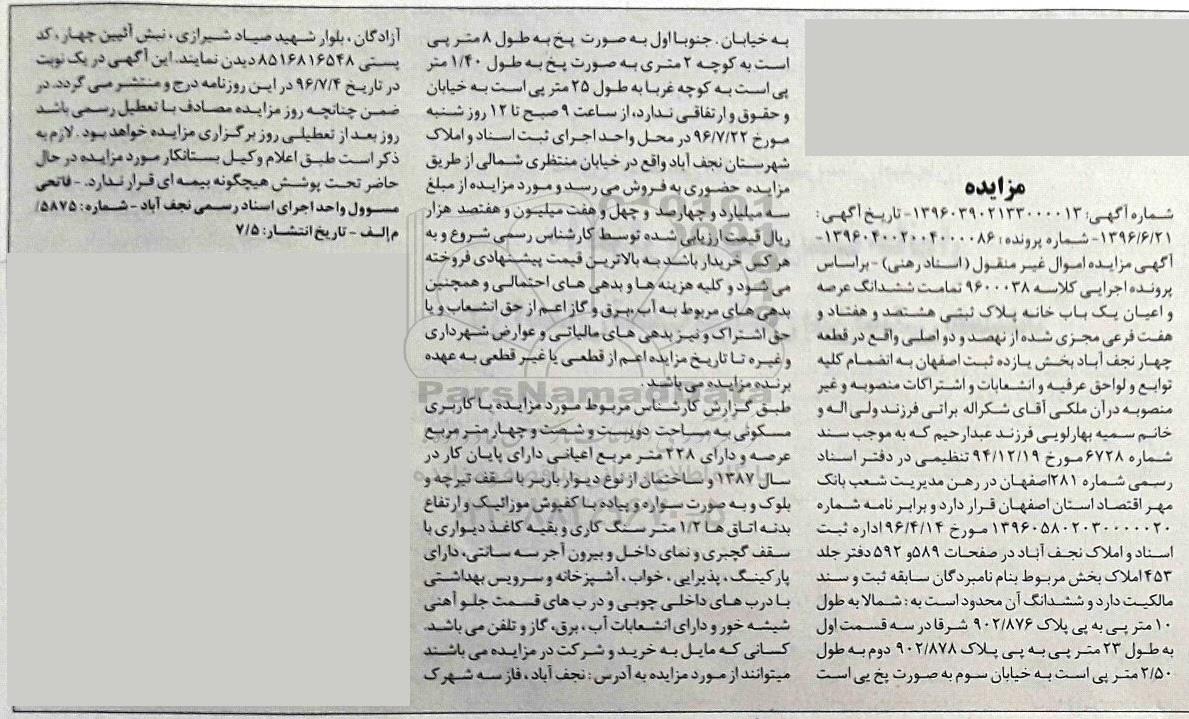 مزایده
شماره آگهی: ۱۳۹۶۰۳۹۰۲۱۳۳۰۰۰۰۱۳- تاریخ آگهی:
۱۳۹۶/۶/۲۱- شماره پرونده: ۱۳۹۶۰۴۰۰۲۰۰۴۰۰۰۰۸۶-
آگهی مزایده اموال غیر منقول (اسناد رهنی) - براساس
پرونده اجرایی کلاسه ۹۶۰۰۰۳۸ تمامت ششدانگ عرصه
و اعیان یک باب خانه پلاک ثبتی هشتصد و هفتاد و
هفت فرعی مجزی شده از نهصد و دو اصلی واقع در قطعه
چهار نجف آباد بخش یازده ثبت اصفهان به انضمام کلیه
توابع و لواحق عرفیه و انشعابات و اشتراکات منصوبه و غیر
منصوبه درآن ملکی آقای شکراله براتی فرزند ولی اله و
خانم سمیه بهارلویی فرزند عبدارحیم که به موجب سند
شماره ۶۷۲۸ مورخ ۹۴/۱۲/۱۹ تنظیمی در دفتر اسناد
رسمی شماره ۲۸۱ اصفهان در رهن مدیریت شعب بانک
مهر اقتصاد استان اصفهان قرار دارد و برابر نامه شماره
۱۳۹۶۰۵۸۰۲۰۳۰۰۰۰۰۲۰ مورخ ۹۶/۴/۱۴ اداره ثبت
اسناد و املاک نجف آباد در صفحات ۵۸۹ و ۵۹۲ دفتر جلد
۴۵۳ املاک بخش مربوط بنام نامبردگان سابقه ثبت و سند
مالکیت دارد و ششدانگ آن محدود است به: شمالا به طول
۱۰ متر پی به پی پلاک ۹۰۲/۸۷۶ شرقا در سه قسمت اول
به طول ۲۳ متر پی به پی پلاک ۹۰۲/۸۷۸ دوم به طول
۲/۵۰ متر پی است به خیابان سوم به صورت پخ پی است
به خیابان. جنوبا اول به صورت پخ به طول ۸ متر پی
است به کوچه ۲ متری به صورت پخ به طول ۱/۴۰ متر
پی است به کوچه غربا به طول ۲۵ متر پی است به خیابان
و حقوق و ارتفاقی ندارد، از ساعت ۹ صبح تا ۱۲ روز شنبه
مورخ ۹۶/۷/۲۲ در محل واحد اجرای ثبت اسناد و املاک
شهرستان نجف آباد واقع در خیابان منتظری شمالی از طریق
مزایده حضوری به فروش می رسد و مورد مزایده از مبلغ
سه میلیارد و چهارصد و چهل و هفت میلیون و هفتصد هزار
ریال قیمت ارزیابی شده توسط کارشناس رسمی شروع و به
هر کس خریدار باشد به بالاترین قیمت پیشنهادی فروخته
می شود و کلیه هزینه ها و بدهی های احتمالی و همچنین
بدهی های مربوط به آب، برق و گاز اعم از حق انشعاب و یا
حق اشتراک و نیز بدهی های مالیاتی و عوارض شهرداری
و غیره تا تاریخ مزایده اعم از قطعی یا غیر قطعی به عهده
برنده مزایده می باشد.
طبق گزارش کارشناس مربوط مورد مزایده با کاربری
مسکونی به مساحت دویست و شصت و چهار متر مربع
عرصه و دارای ۲۲۸ متر مربع اعیانی دارای پایان کار در
سال ۱۳۸۷ و ساختمان از نوع دیوار باربر با سقف تیرچه و
بلوک و به صورت سواره و پیاده با کفپوش موزائیک و ارتفاع
بدنه اتاق ها ۱/۲ متر سنگ کاری و بقیه کاغذ دیواری با
سقف گچبری و نمای داخل و بیرون آجر سه سانتی، دارای
پارکینگ، پذیرایی، خواب، آشپزخانه و سرویس بهداشتی
با درب های داخلی چوبی و درب های قسمت جلو آهنی
شیشه خور و دارای انشعابات آب، برق، گاز و تلفن می باشد.
کسانی که مایل به خرید و شرکت در مزایده می باشند
میتوانند از مورد مزایده به آدرس: نجف آباد، فاز سه شهرک
آزادگان، بلوار شهید صیاد شیرازی، نبش آئین چهار، کد
پستی ۸۵۱۶۸۱۶۵۴۸ دیدن نمایند. این آگهی در یک نوبت
در تاریخ ۹۶/۷/۴ در این روزنامه درج و منتشر می گردد. در
ضمن چنانچه روز مزایده مصادف با تعطیل رسمی باشد
روز بعد از تعطیلی روز برگزاری مزایده خواهد بود. لازم به
ذکر است طبق اعلام وکیل بستانکار مورد مزایده در حال
حاضر تحت پوشش هیچگونه بیمه ای قرار ندارد. - فاتحی
مسوول واحد اجرای اسناد رسمی نجف آباد - شماره: ۵۸۷۵/
م الف - تاریخ انتشار: ۷/۵
ParsNamadData